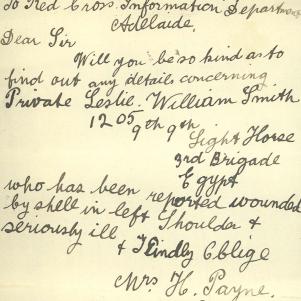 To Red Cross Information Department
Adelaide.
Dear Sir
Will you be so kind as to
find out any details concerning
Private Leslie. William Smith
1205 9th 9th
Light Horse
3rd Brigade
Egypt
who has been reported wounded
by shell in left Shoulder &
seriously ill
& Kindly Oblige
Mrs H. Payne.